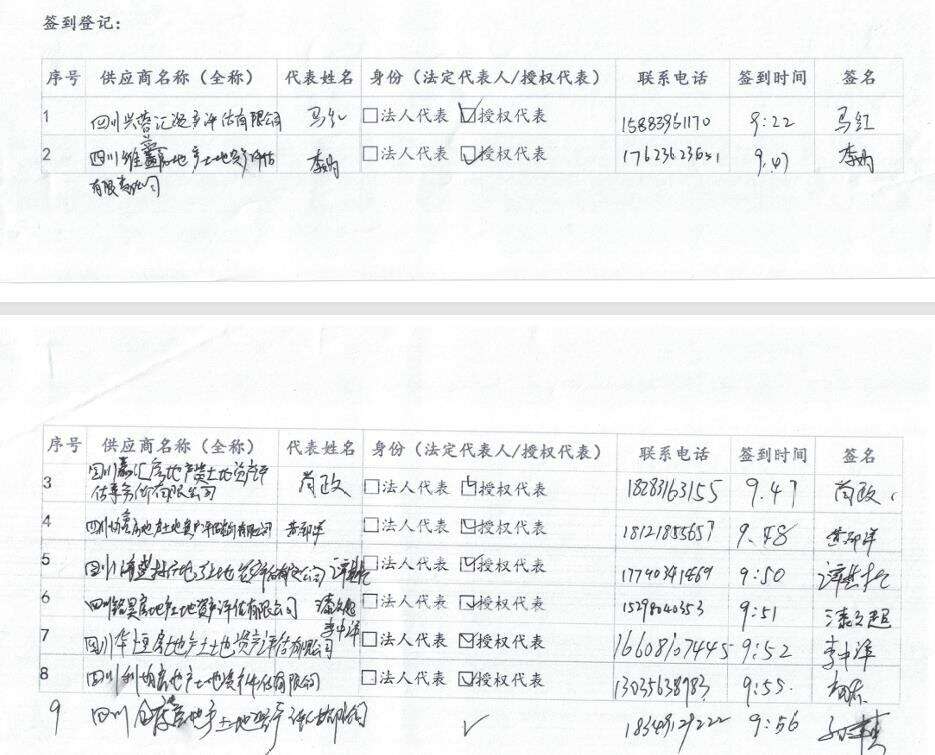 签到登记：
序号 供应商名称（全称） 代表姓名 身份（法定代表人/授权代表） 联系电话 签到时间 签名
1 四川兴蓉汇资产评估有限公司 马红 □法人代表 ☑授权代表 15883961170 9:22 马红
2 四川维鑫房地产土地资产评估 李 □法人代表 ☑授权代表 17623623651 9.47 李
有限责任公司
序号 供应商名称（全称） 代表姓名 身份（法定代表人/授权代表） 联系电话 签到时间 签名
四川嘉汇房地产土地资产评
3 估事务所有限公司 苟政 □法人代表 ☑授权代表 18283163155 9.47 苟政
4 四川协 房地产土地资产评估 有限公司 □法人代表 ☑授权代表 18121855657 9.48
5 四川 房地产土地资产评估有限公司 谭 □法人代表 ☑授权代表 17790341469 9:50 谭
6 四川铭昊房地产土地资产评估有限公司 漆文超 □法人代表 ☑授权代表 15298040353 9:51 漆文超
7 四川华恒房地产土地资产评估有限公司 李中泽 □法人代表 ☑授权代表 16608107445 9:52 李中泽
8 四川 房地产土地资产评估有限公司 □法人代表 ☑授权代表 13035638983 9:55.
9 四川 土地资产评估有限公司 ✓ 18349129222 9:56